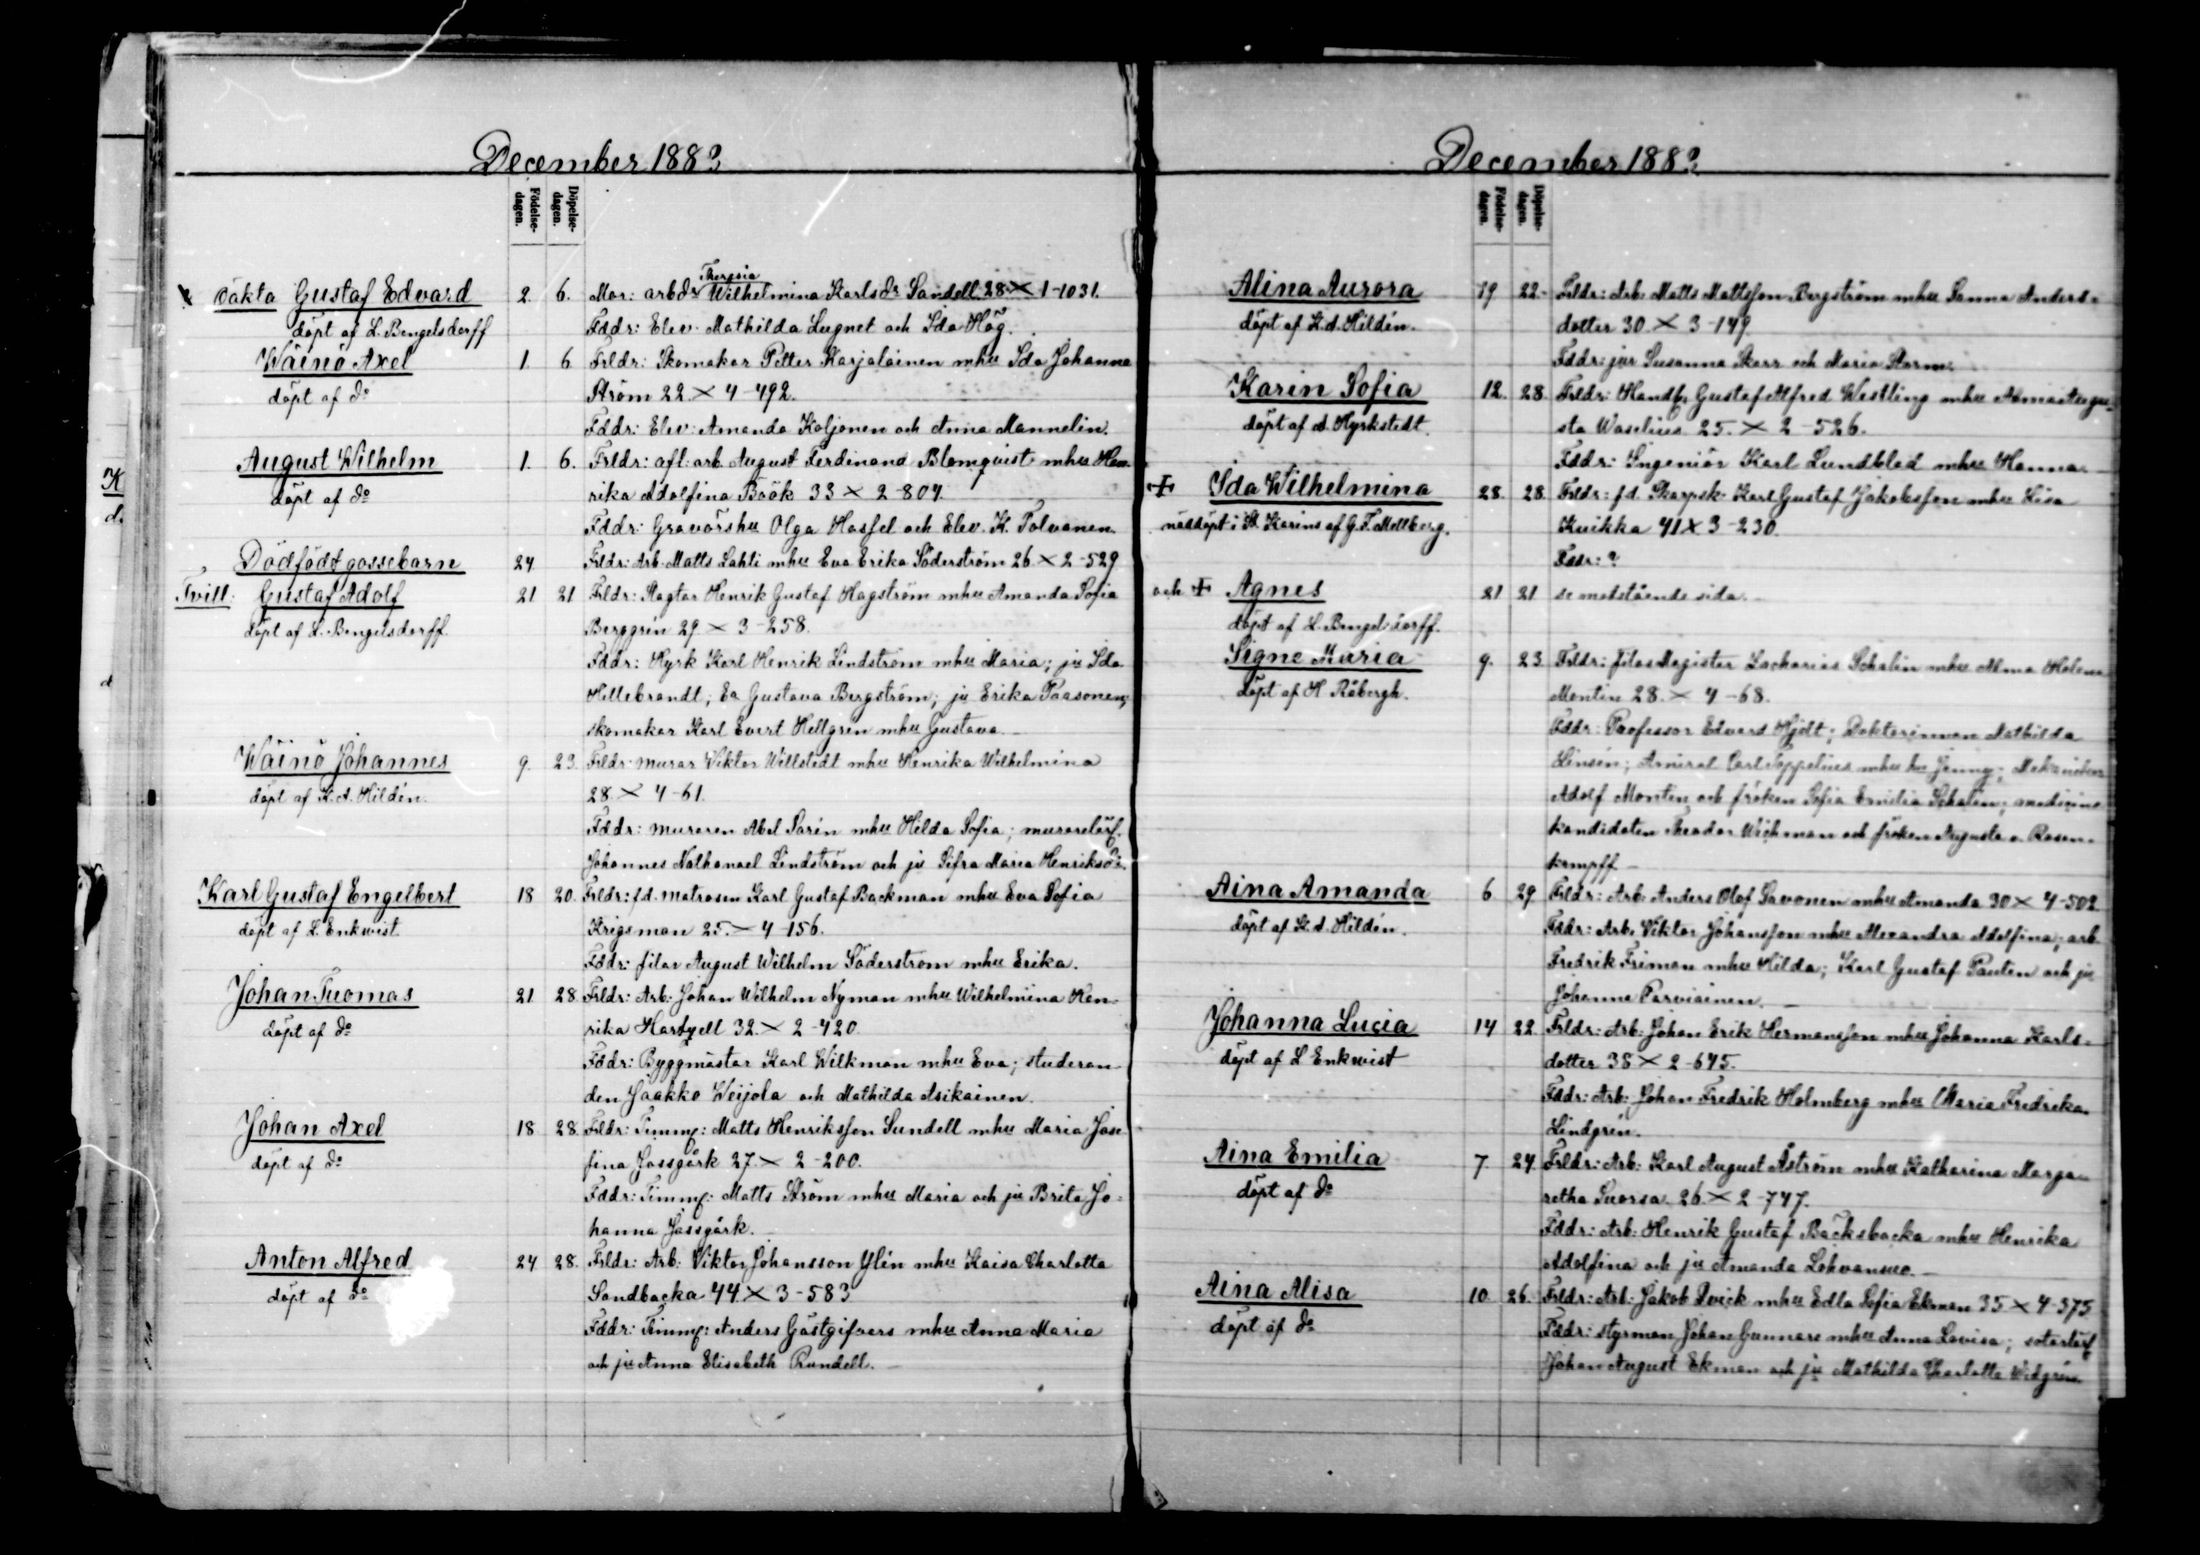 December 1883
Födelse-dagen.
Döpelse-dagen.
oäkta Gustaf Edvard 2. 6. Mor: arbdr Theresia Wilhelmina Karlsdr Sandell 28 × 1-1031.
döpt af L. Bengelsdorff Fddr: Elev. Mathilda Lugnet och Ida Hög.
Wäinö Axel 1. 6 Frldr: Skomakar Petter Karjalainen mhu Ida Johanna
döpt af do Ström 22. × 4-492.
Fddr: Elev: Amanda Koljonen och Anna Mannelin.
August Wilhelm 1. 6. Frldr: afl: arb. August Ferdinand Blomqvist mhu Hen-
döpt af do rika Adolfina Böök 33 × 2-807.
Fddr: Gravörshu Olga Hassel och Elev. K. Tolvanen.
Dödfödt gossebarn 24 Frldr: Arb. Matts Lahti mhu Eva Erika Söderström 26 × 2-529
Tvill: Gustaf Adolf 21 21 Frldr: Henrik Gustaf Hagström mhu Amanda Sofia
döpt af L. Bengelsdorff. Berggrén 29 × 3-258.
Fddr: Hyrk Karl Henrik Lindström mhu Maria; ju Ida
Hillebrandt; Ea Gustava Bergström; ju Erika Paasonen;
skomakar Karl Evert Hellgren mhu Gustava.
Wäinö Johannes 9. 23. Frldr: murar Viktor Willstedt mhu Henrika Wilhelmina
döpt af K. A. Hildén. 28. × 4-61.
Fddr: muraren Abel Sarén mhu Hilda Sofia; murarelärl.
Johannes Nathanael Lindström och ju Sefra Maria Henriksdr.
Karl Gustaf Engelbert 18 20. Frldr: fd. matrosen Karl Gustaf Backman mhu Eva Sofia
döpt af L. Enkvist. Krigsman 25. × 4-156.
Fddr: filar August Wilhelm Söderström mhu Erika.
Johan Tuomas 21 28 Frldr: Arb: Johan Wilhelm Nyman mhu Wilhelmina Hen-
döpt af do rika Hartzell 32. × 2-420.
Fddr: Byggmästar Karl Wilkman mhu Eva; studeran-
den Jaakko Weijola och Mathilda Asikainen.
Johan Axel 18 28. Frldr: Timmg: Matts Henriksson Sundell mhu Maria Jose-
döpt af do fina Jossgårk 27. × 2-200.
Fddr: Timmg: Matts Ström mhu Maria och ju Brita Jo-
hanna Jossgårk.
Anton Alfred 24 28. Frldr: Arb: Viktor Johansson Ylén mhu Kaisa Charlotta
döpt af do Sandbacka 44 × 3-583
Fddr: Timmg: Anders Gästgifvars mhu Anna Maria
och ju Anna Elisabeth Rundell.
December 1883
Födelse-dagen.
Döpelse-dagen.
Alina Aurora 19 22. Frldr: Arb. Matts Mattsson Bergström mhu Sanna Anders-
döpt af K. A. Hildén. dotter 30. × 3-149
Fddr: jur Susanna Skarr och Maria Storm.
Karin Sofia 12. 28. Frldr: Handl. Gustaf Alfred Westling mhu Augu-
döpt af A. Hyrkstedt. sta Waselius 25. × 2-526.
Fddr: Ingeniör Karl Lundblad mhu Hanna.
+ Ida Wilhelmina 28. 28. Frldr: fd. Skarpsk. Karl Gustaf Jakobsson mhu Lisa
nöddöpt i St Karins af G. F. Mellberg. Kuikka 41 × 3-230.
Fddr: ?
och + Agnes 21 21 se motstående sida.
döpt af L. Bengelsdorff.
Signe Maria 9. 23. Frldr: filos Magister Zacharias Schalin mhu Alma Helena
döpt af H. Råbergh. Montin 28. × 4-68.
Fddr: Professor Edvard Hjelt; Doktorinnan Mathilda
Linsén; Amiral Carl mhu Jenny;
Adolf Montin och fröken Sofia Emilia Schalin; medicine
kandidaten Theodor Wichman och fröken Augusta v. Rosen-
kampff
Aina Amanda 6 29 Frldr: Arb: Anders Olof Savonen mhu Amanda 30 × 4-502
döpt af K. A. Hildén. Fddr: Arb. Viktor Johansson mhu Alexandra Adolfina; arb
Fredrik Friman mhu Hilda; Karl Gustaf Pautin och ju
Johanna Parviainen.
Johanna Lucia 14 22. Frldr: Arb: Johan Erik Hermansson mhu Johanna Karls-
döpt af L Enkvist dotter 38 × 2-675.
Fddr: Arb: Johan Fredrik Holmberg mhu Maria Fredrika
Lindgrén.
Aina Emilia 7. 27. Frldr: Arb: Karl August Åström mhu Katharina Marga-
döpt af do retha Suorsa 26. × 2-747.
Fddr: Arb: Henrik Gustaf Bäcksbacka mhu Henrika
Adolfina och ju Amanda
Aina Alisa 10. 26. Frldr: Arb: Jakob Qvick mhu Edla Sofia Ekman 35 × 4-375
döpt af do Fddr: styrman Johan Gunnars mhu Anna Lovisa; sotarlärl
Johan August Ekman och ju Mathilda Charlotta Widgrén.